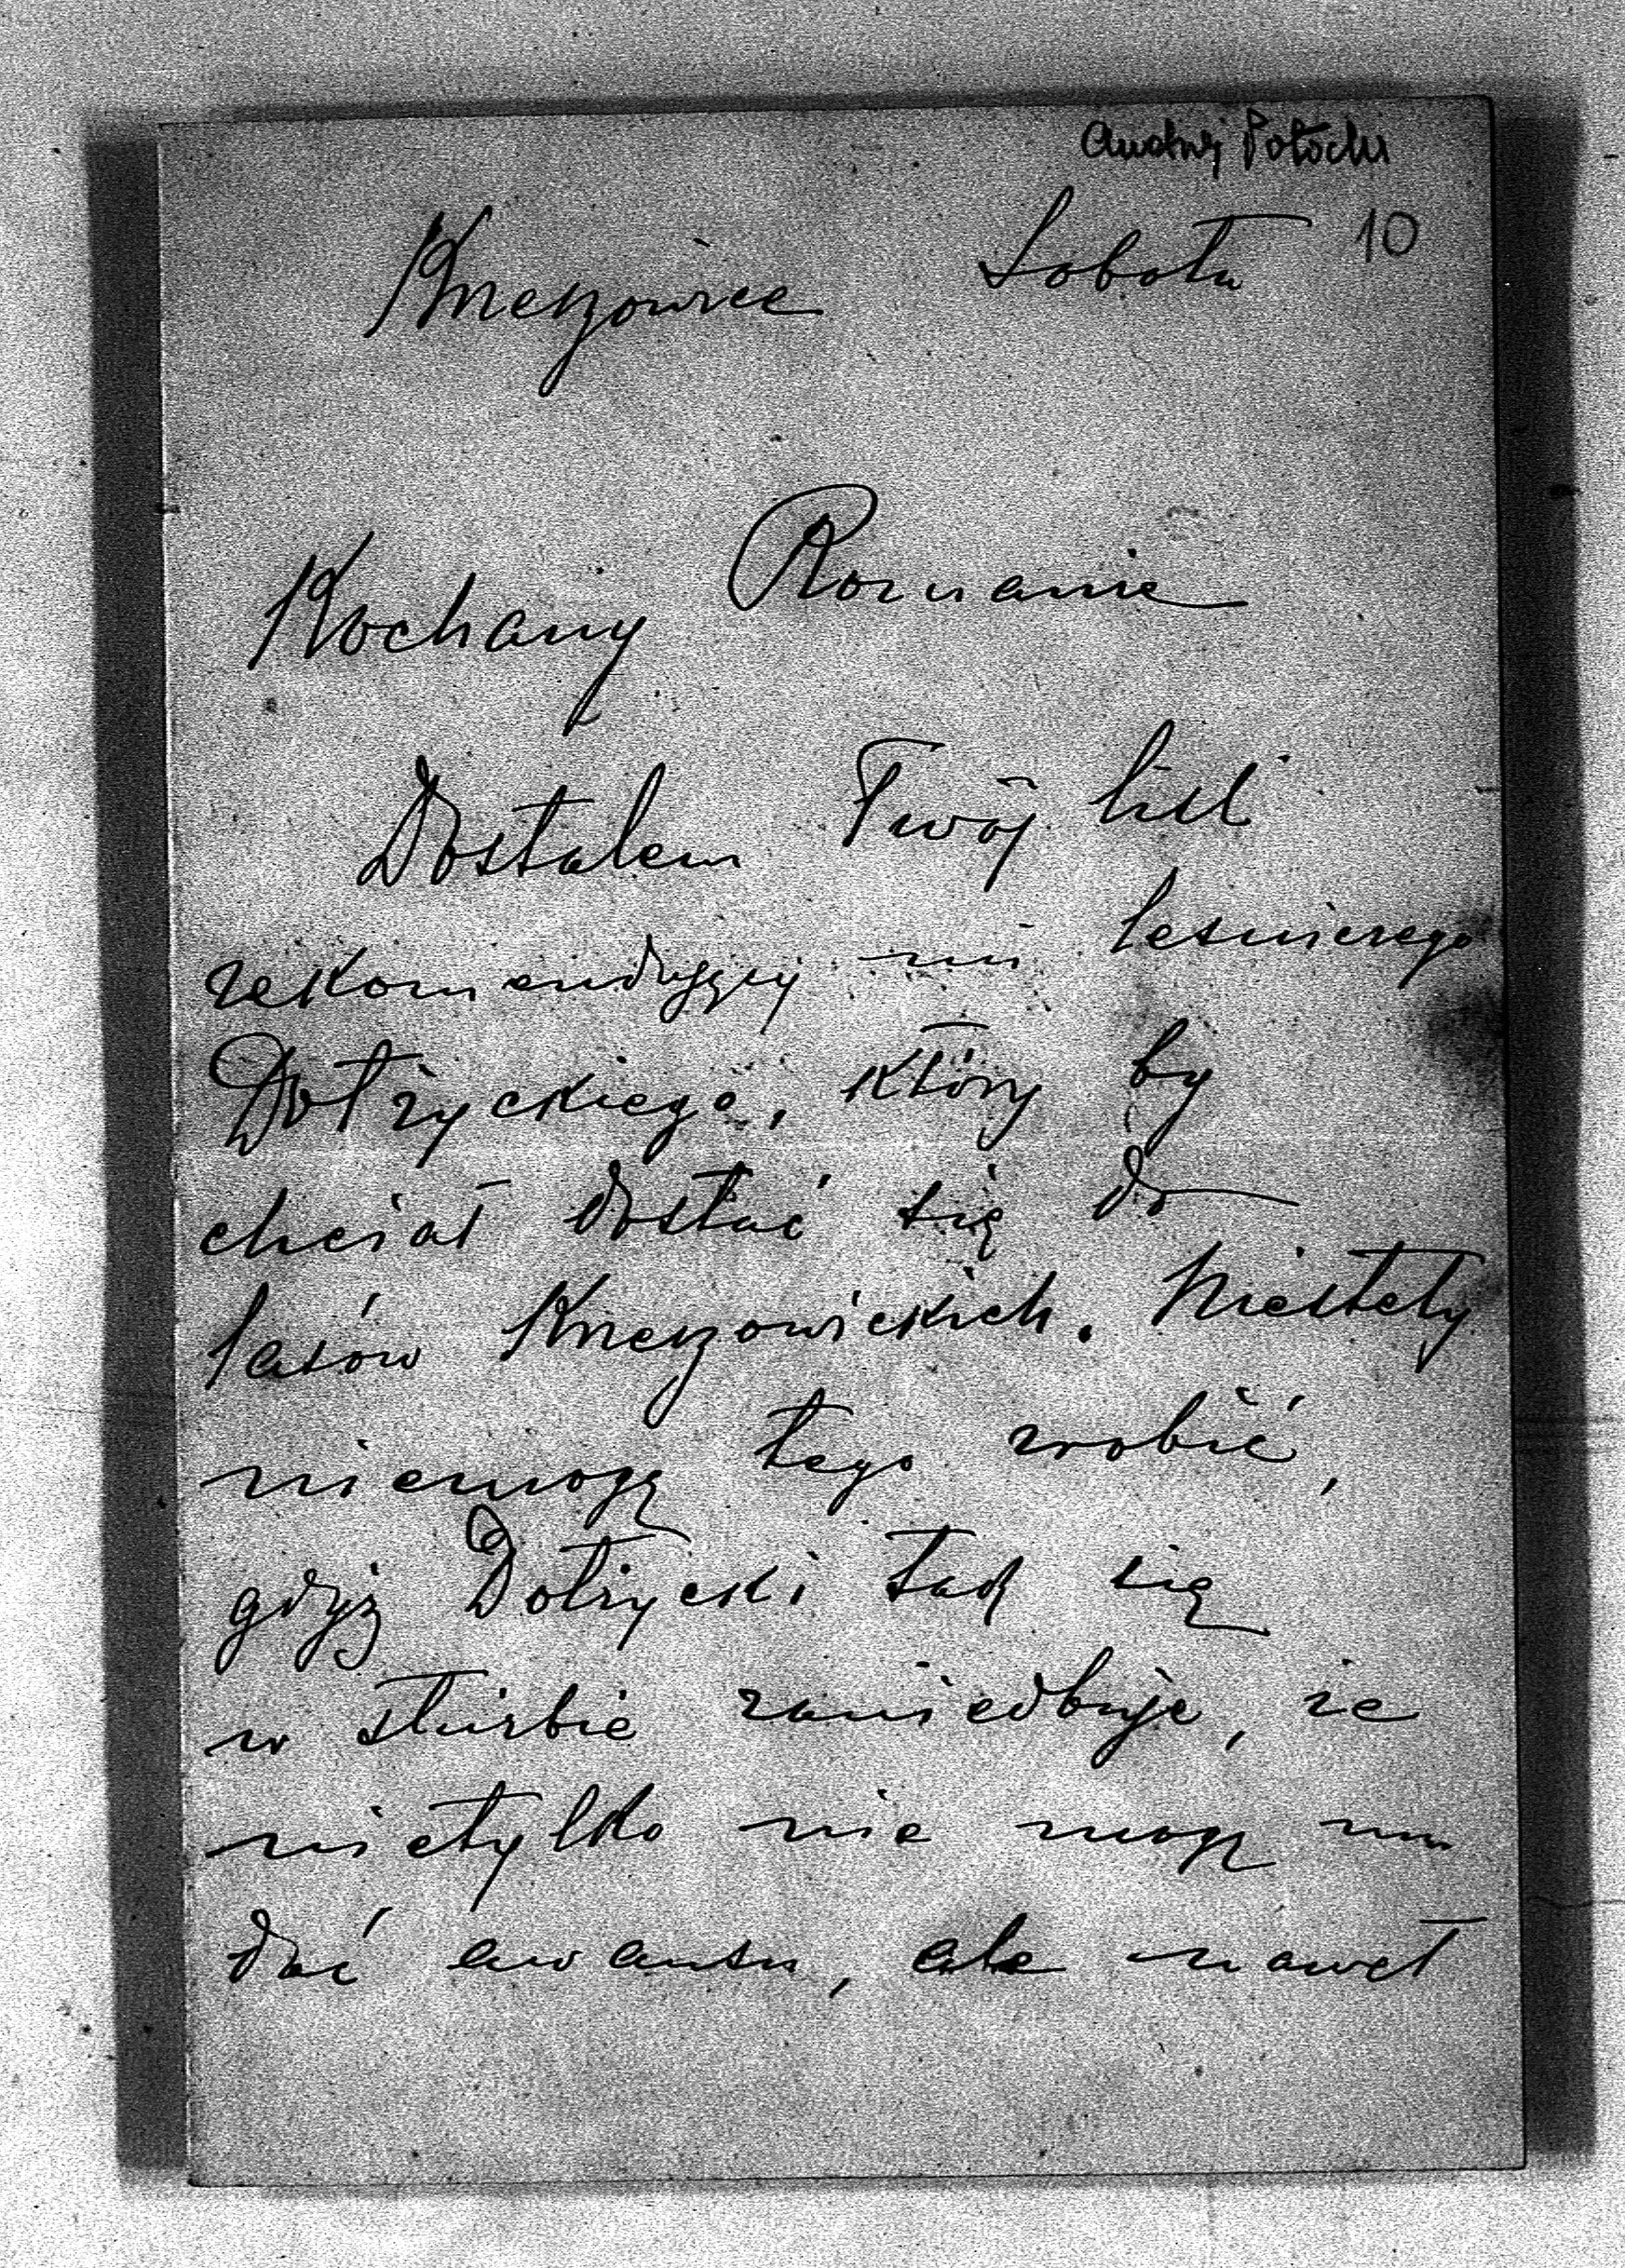 Andrzej Potocki
10
Krzeszowice Sobota
Kochany Romanie
Dostałem Twój list
rekomendujący mi leśniczego
Dotżyckiego, który by
chciał dostać się do
lasów Krzeszowickich. Niestety
niemogę tego zrobić,
gdyż Dotżycki tak się
w służbie zaniedbuje, że
nietylko nie mogę mu
dać awansu, ale nawet